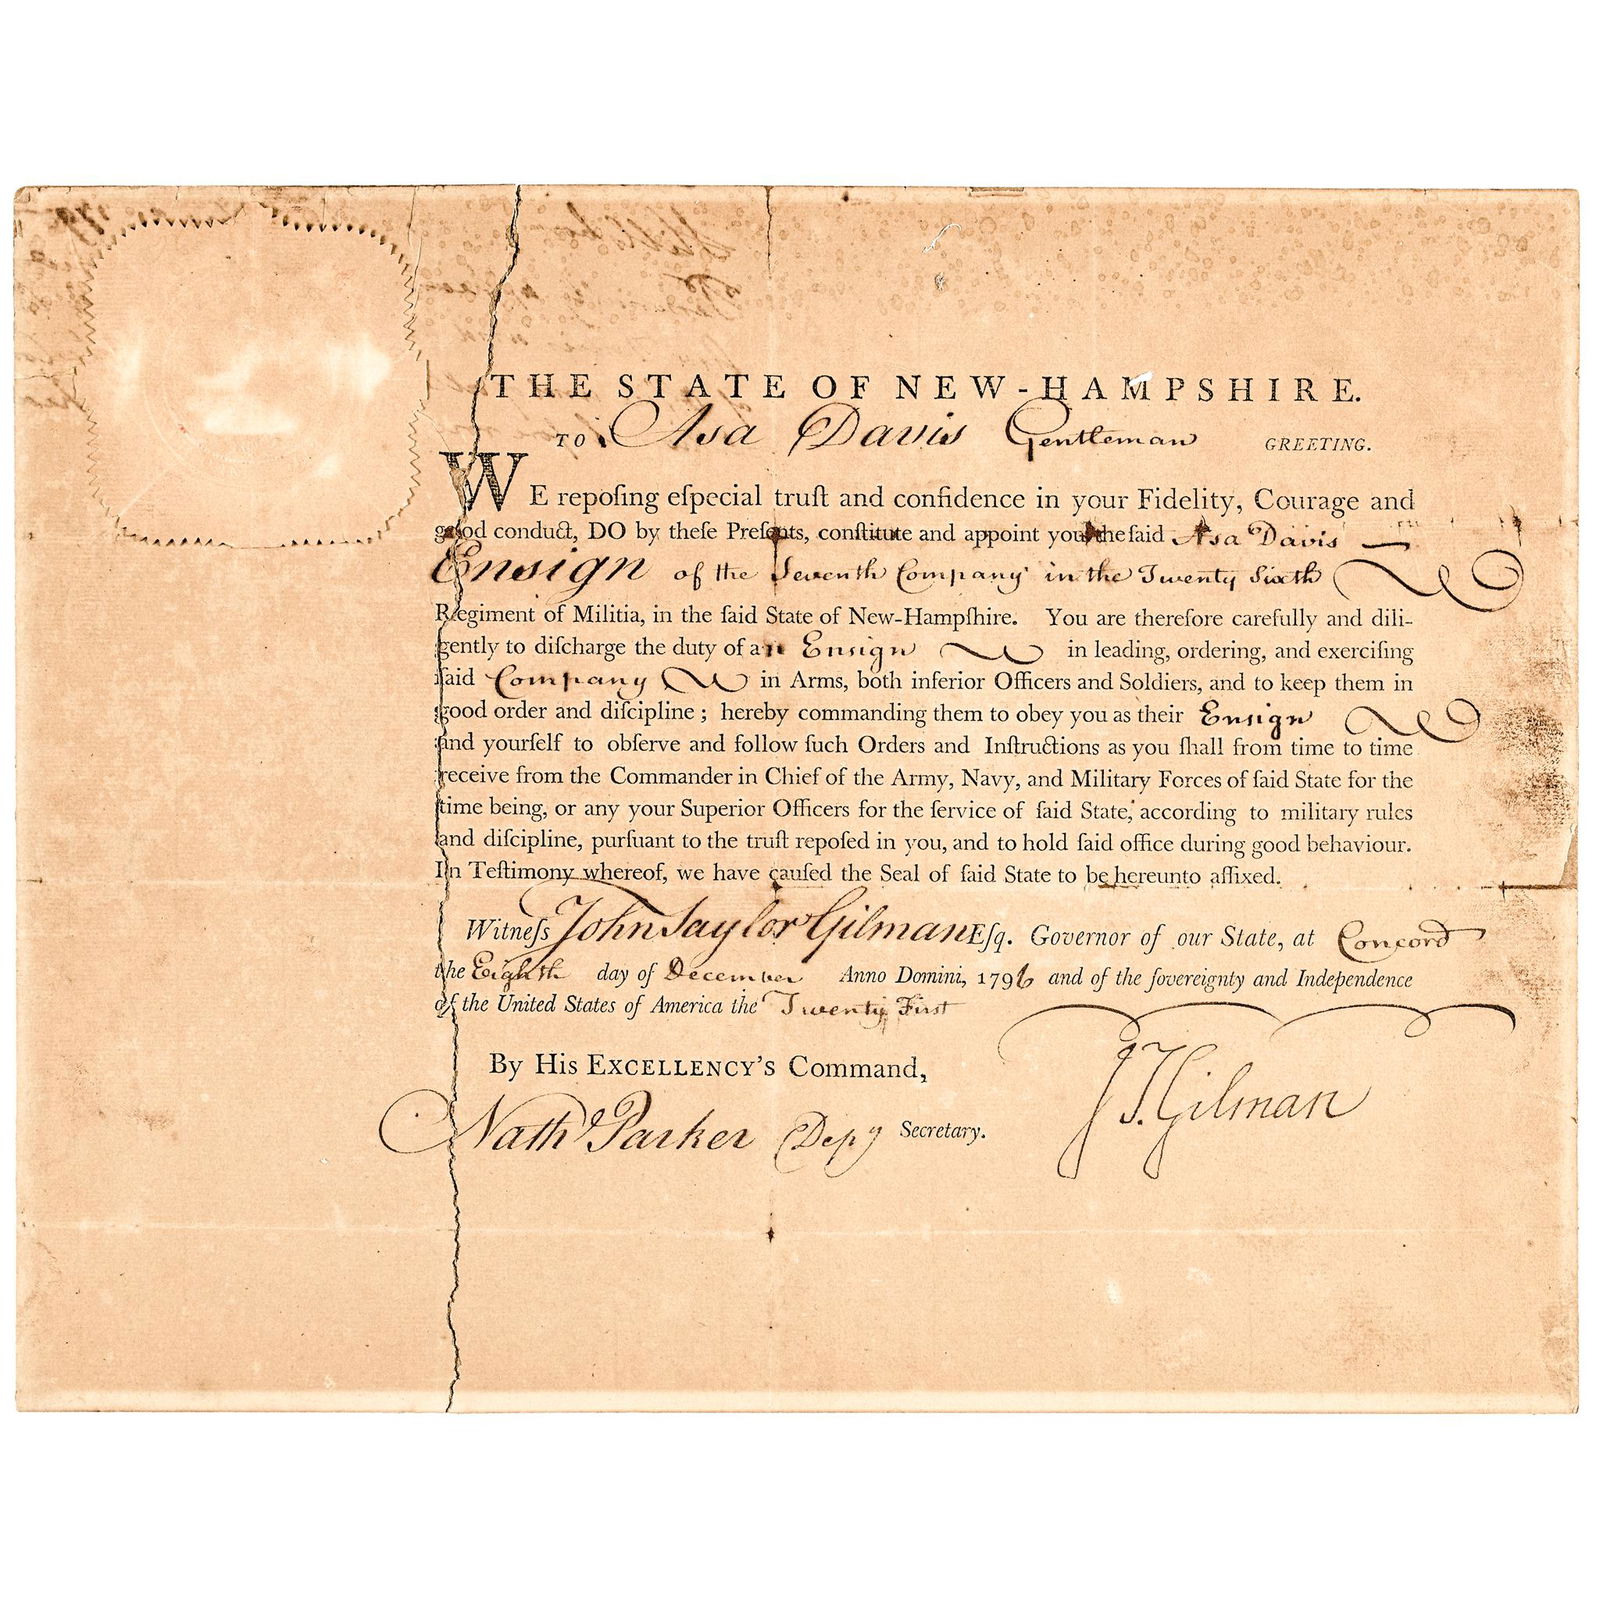 THE STATE OF NEW-HAMPSHIRE.
TO Asa Davis Gentleman GREETING.
WE repoſing eſpecial truſt and confidence in your Fidelity, Courage and
good conduct, DO by theſe Preſents, conſtitute and appoint you the ſaid Asa Davis
Ensign of the Seventh Company in the Twenty Sixth
Regiment of Militia, in the ſaid State of New-Hampſhire. You are therefore carefully and dili-
gently to diſcharge the duty of an Ensign in leading, ordering, and exerciſing
ſaid Company in Arms, both inferior Officers and Soldiers, and to keep them in
good order and diſcipline ; hereby commanding them to obey you as their Ensign
and yourſelf to obſerve and follow ſuch Orders and Inſtructions as you ſhall from time to time
receive from the Commander in Chief of the Army, Navy, and Military Forces of ſaid State for the
time being, or any your Superior Officers for the ſervice of ſaid State, according to military rules
and diſcipline, purſuant to the truſt repoſed in you, and to hold ſaid office during good behaviour.
In Teſtimony whereof, we have cauſed the Seal of ſaid State to be hereunto affixed.
Witneſs John Taylor Gilman Eſq. Governor of our State, at Concord
the Eighth day of December Anno Domini, 1796 and of the ſovereignty and Independence
of the United States of America the Twenty First
By His EXCELLENCY'S Command,
J. T. Gilman
Nath Parker Depy Secretary.